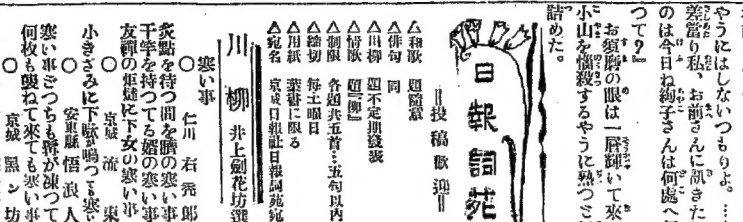 やうにはしないつもりよ。…
差當り私、お前さんに訊きた
のは今日ね絢子さんは何處へ
つて？』
お須磨の眼は一層輝いて來
小山を惱殺するやうに熱つこ
詰めた。
日報詞苑
＝投稿歡迎＝
△和歌 題隨意
△俳句 同
△川柳 題不定期發表
△情歌 題『柳』
△制限 各題共五首…五句以內
△締切 每土曜日
△用紙 葉書に限る
△宛名 京城日報社日報詞苑宛
川柳 井上劍花坊選
寒い事
○ 仁川 右禿郎
灸點を待つ間を臍の寒い事
干竿を持つてる婿の寒い事
友禪の炬燵に下女の寒い事
○ 京城 流東
小きざみに下駄が鳴つても寒い
○ 安東縣 悟浪人
寒い事ごつちも髯が凍つて
何枚も襲ねて來ても寒い事
○ 京城 黑ン坊